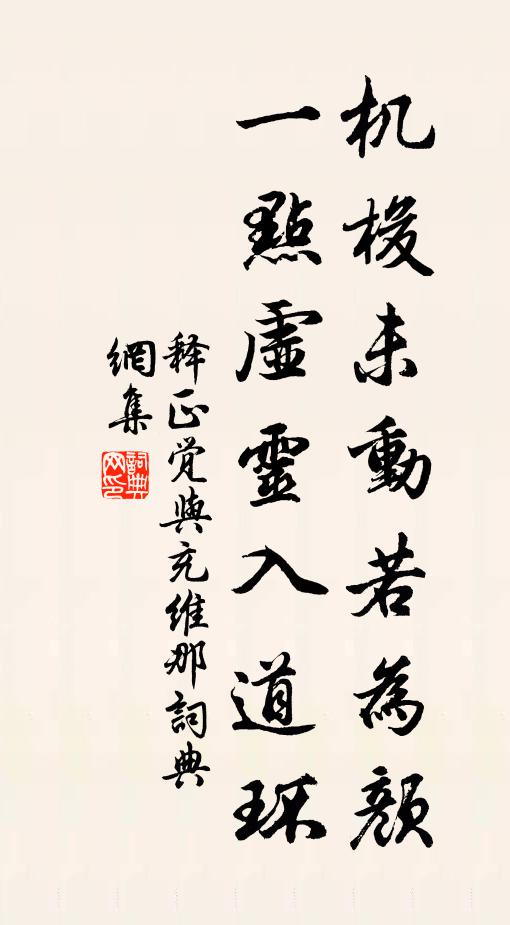 机梭未動若為顏
一點虛靈入道环
释正觉與充維那詞典
網集
詞典網印